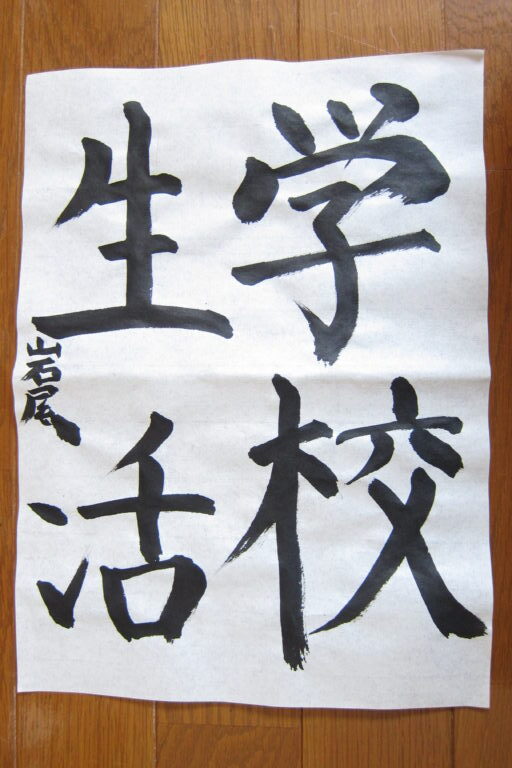 学校
生活
岩尾